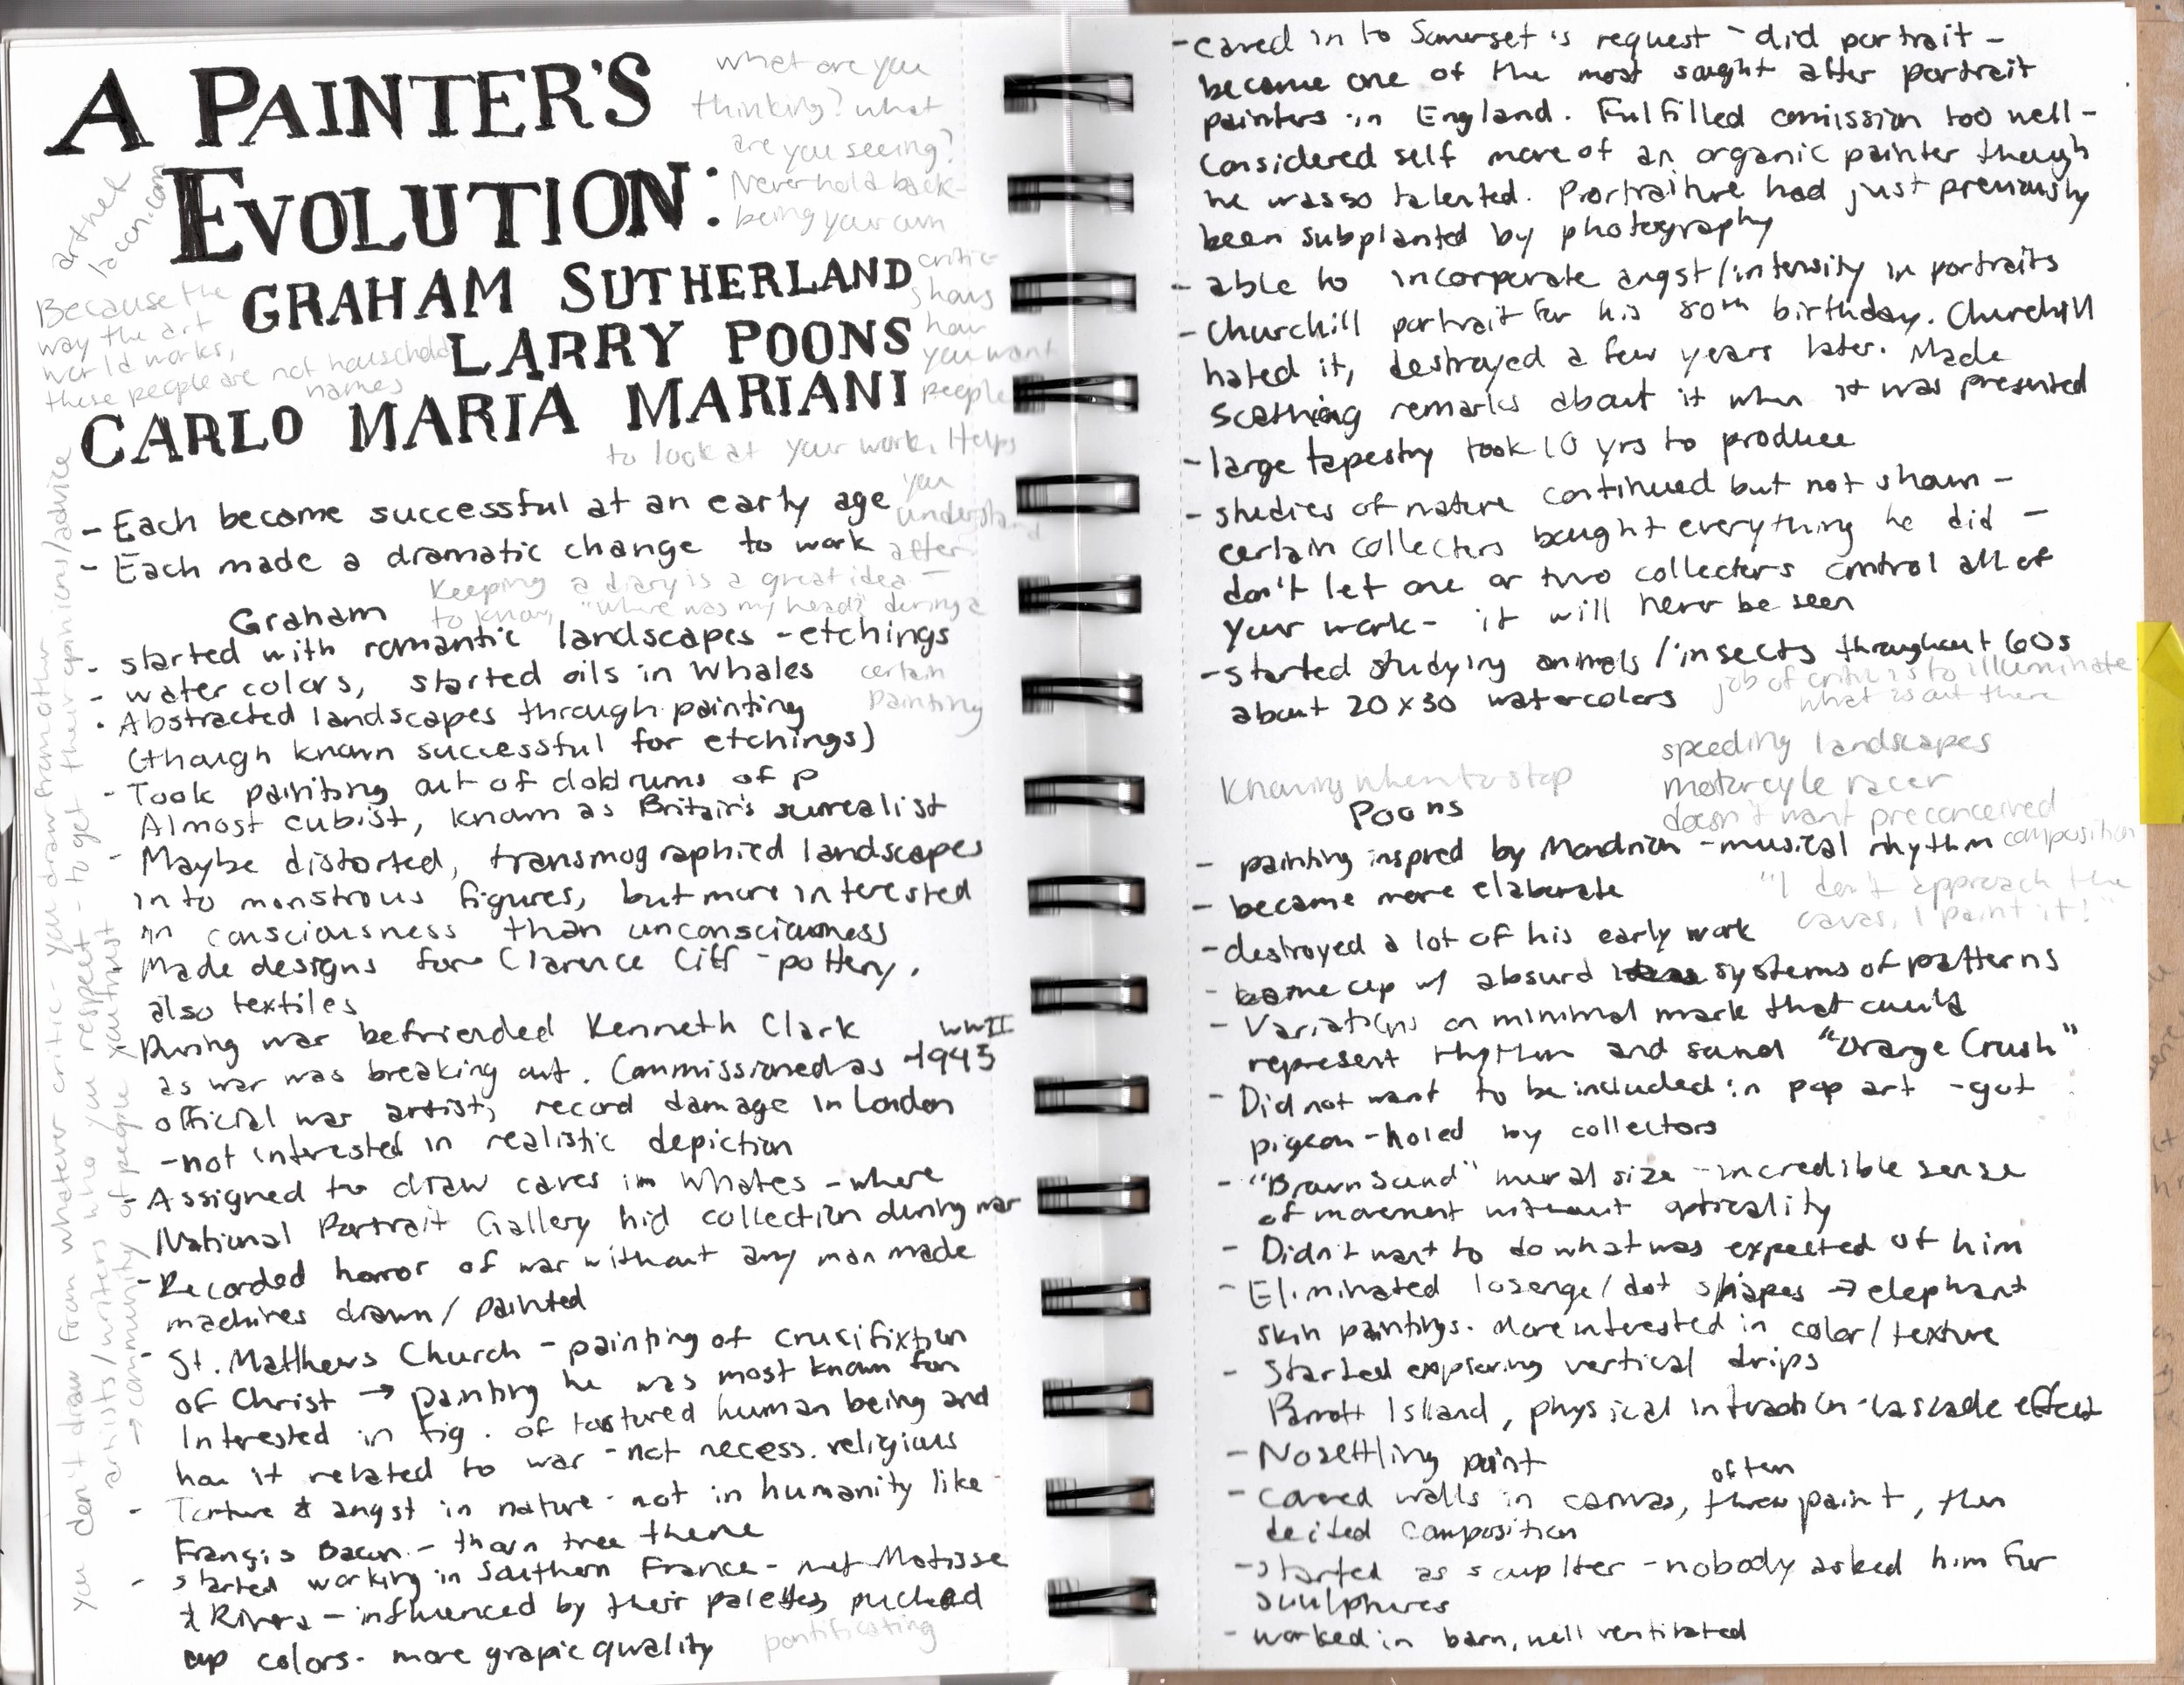 A PAINTER'S
EVOLUTION:
GRAHAM SUTHERLAND
LARRY POONS
CARLO MARIA MARIANI
what are you
thinking? what
are you seeing?
Never hold back -
being your own
critic -
shows
how
you want
people
to look at your work. Helps
you
understand
after
Because the
way the art
world works,
these people are not household
names
- Each become successful at an early age
- Each made a dramatic change to work
Keeping a diary is a great idea -
to know, "Where was my head?" during a
certain
painting
Graham
- started with romantic landscapes - etchings
- water colors, started oils in Whales
- Abstracted landscapes through painting
(though known successful for etchings)
- Took painting out of doldrums of p
Almost cubist, known as Britain's surrealist
- Maybe distorted, transmographied landscapes
into monstrous figures, but more interested
in consciousness than unconsciousness
Made designs for Clarence Ciff - pottery,
also textiles
During war befriended Kenneth Clark WWII
as war was breaking out. Commissioned as -1945
official war artist, record damage in London
- not interested in realistic depiction
- Assigned to draw caves in Whales - where
National Portrait Gallery hid collection during war
- Recorded horror of war without any man made
machines drawn / painted
- St. Matthews Church - painting of crucifixtion
of Christ → painting he was most known for
Interested in fig. of tortured human being and
how it related to war - not necess. religious
- Torture & angst in nature - not in humanity like
Francis Bacon - thorn tree theme
- started working in Southern France - met Matisse
& - influenced by their palettes,
up colors. more grapic quality
pontificating
you don't draw from whatever critic - you draw from other
artists/writers who you respect - to get their opinions/advice
→ community of people you trust
- caved in to Somerset's request - did portrait -
became one of the most sought after portrait
painters in England. Fulfilled comission too well -
Considered self more of an organic painter though
he was so talented. Portraiture had just previously
been subplanted by photography
- able to incorporate angst/intensity in portraits
- Churchill portrait for his 80th birthday. Churchill
hated it, destroyed a few years later. Made
scathing remarks about it when it was presented
- large tapestry took 10 yrs to produce
- studies of nature continued but not shown -
certain collecters bought everything he did -
don't let one or two collectors control all of
your work - it will never be seen
- started studying animals / insects throughout 60s
about 20 x 30 watercolors
job of critic is to illuminate
what is out there
Knowing when to stop
speeding landscapes
motorcyle racer
doesn't want preconceived
composition
"I don't approach the
cavas, I paint it!"
Poons
- painting inspred by Mondrian - musical rhythm
- became more elaborate
- destroyed a lot of his early work
- came up w/ absurd systems of patterns
- Variations on minimal mark that could
represent rhythm and sound "Orange Crush"
- Did not want to be included in pop art - got
pigeon-holed by collectors
- "Brown Sound" mural size - incredible sense
of movement without opticality
- Didn't want to do what was expected of him
- Eliminated losenge/dot shapes → elephant
skin paintings. More interested in color/texture
- Started exploring vertical drips
Parrott Island, physical interaction - cascade effect
- No settling point
- Covered walls in canvas, often threw paint, then
composition
- started as sculpter - nobody asked him for
sculptures
- worked in barn, well ventilated